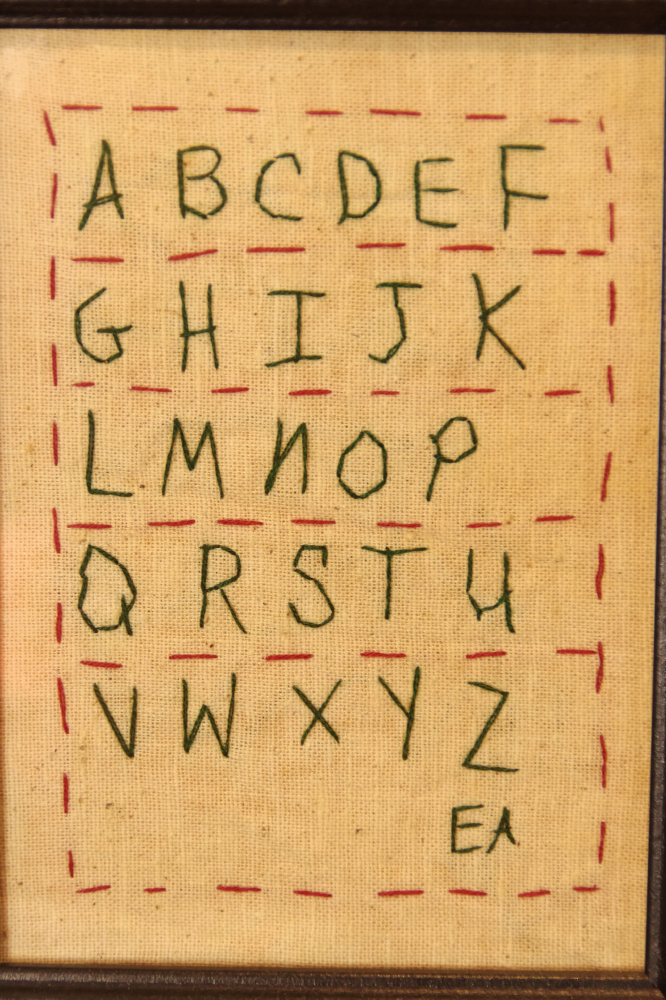 A B C D E F
G H I J K
L M N O P
Q R S T U
V W X Y Z
EA